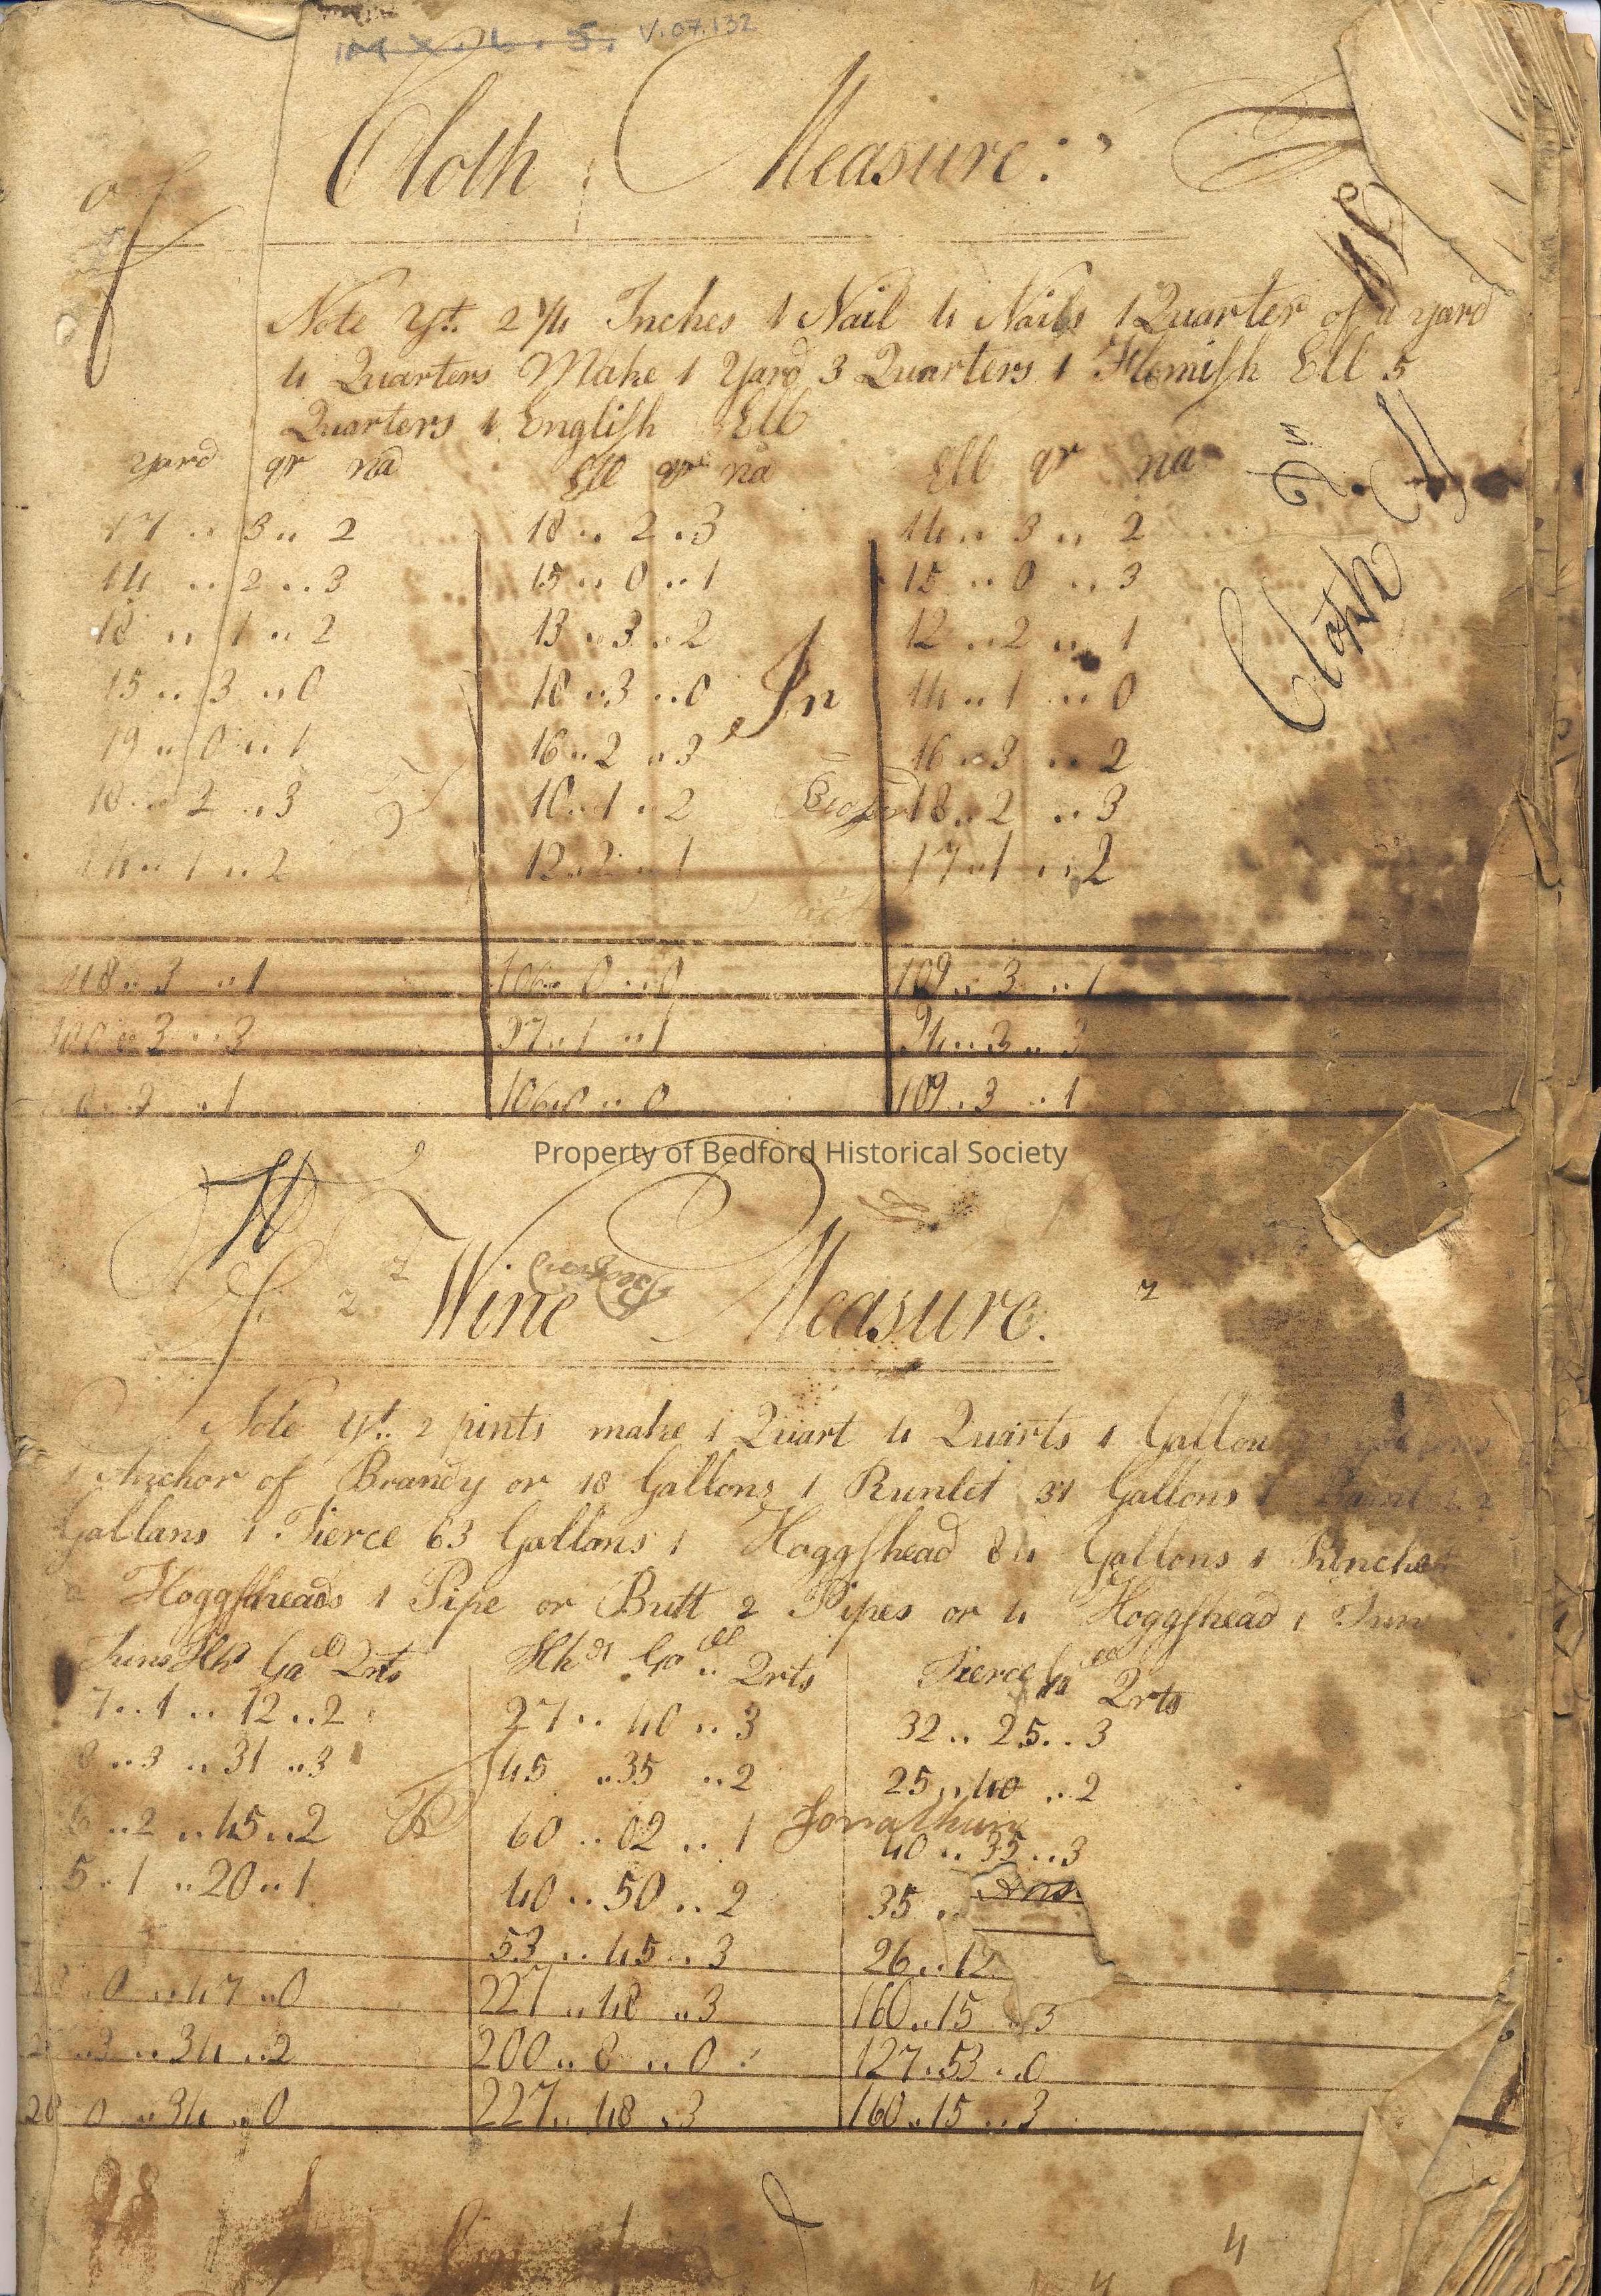 V.07.132
Cloth Measure:
of
Note yt. 2 1/4 Inches 1 Nail 4 Nails 1 Quarter of a yard
4 Quarters Make 1 Yard 3 Quarters 1 Flemish Ell 5
Quarters 1 English Ell
yard qr na Ell qr na Ell qr na
17 .. 3 .. 2 18 .. 2 .. 3 14 .. 3 .. 2
14 .. 2 .. 3 15 .. 0 .. 1 15 .. 0 .. 3
18 .. 1 .. 2 13 .. 3 .. 2 12 .. 2 .. 1
15 .. 3 .. 0 18 .. 3 .. 0 14 .. 1 .. 0
In
19 .. 0 .. 1 16 .. 2 .. 3 16 .. 3 .. 2
18 .. 2 .. 3 10 .. 1 .. 2 18 .. 2 .. 3
14 .. 1 .. 2 12 .. 2 .. 1 17 .. 1 .. 2
118 .. 3 .. 1 106 .. 0 .. 0 109 .. 3 .. 1
100 .. 3 .. 3 87 .. 1 .. 1 94 .. 3 .. 3
3 .. 1 106 .. 0 .. 0 109 .. 3 .. 1
In
Cloth
Property of Bedford Historical Society
Wine Measure.
Note yt. 2 pints make 1 Quart 4 Quarts 1 Gallon
1 Anchor of Brandy or 18 Gallons 1 Runlet 31 Gallons 1 Barrel 42
Gallans 1 Tierce 63 Gallans 1 Hoggshead 84 Gallons 1 Punchen
2 Hoggsheads 1 Pipe or Butt 2 Pipes or 4 Hoggshead 1 Tun
Tuns Hhd Gall Qrts Hhds Gall Qrts Tierce Gall Qrts
7 .. 1 .. 12 .. 2 27 .. 40 .. 3 32 .. 25 .. 3
8 .. 3 .. 31 .. 3 45 .. 35 .. 2 25 .. 40 .. 2
6 .. 2 .. 45 .. 2 60 .. 02 .. 1 40 .. 35 .. 3
Jonathan
5 .. 1 .. 20 .. 1 40 .. 50 .. 2 35 ..
53 .. 45 .. 3 26 .. 12
28 .. 0 .. 47 .. 0 227 .. 48 .. 3 160 .. 15 .. 3
.. 3 .. 34 .. 2 200 .. 8 .. 0 127 .. 53 .. 0
28 0 .. 34 .. 0 227 .. 48 .. 3 160 .. 15 .. 3
4